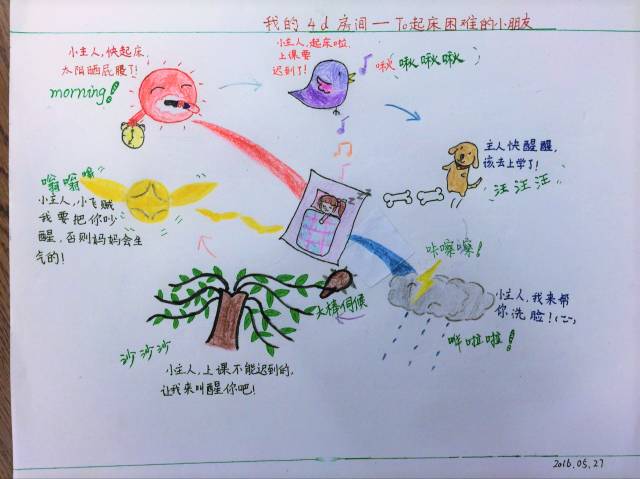 我的4d房间—To起床困难的小朋友
小主人,快起床,
太阳晒屁股了!
morning!
小主人,起床啦,
上课要
迟到了!
啾啾啾啾
主人快醒醒,
该去上学了!
汪汪汪
zzz
嗡嗡嗡
小主人,小飞贼
我要把你吵
醒,否则妈妈会生
气的!
咔嚓嚓!
小主人,我来帮
你洗脸!
哗啦啦!
大棒伺候
沙沙沙
小主人,上课不能迟到的,
让我来叫醒你吧!
2016.05.27